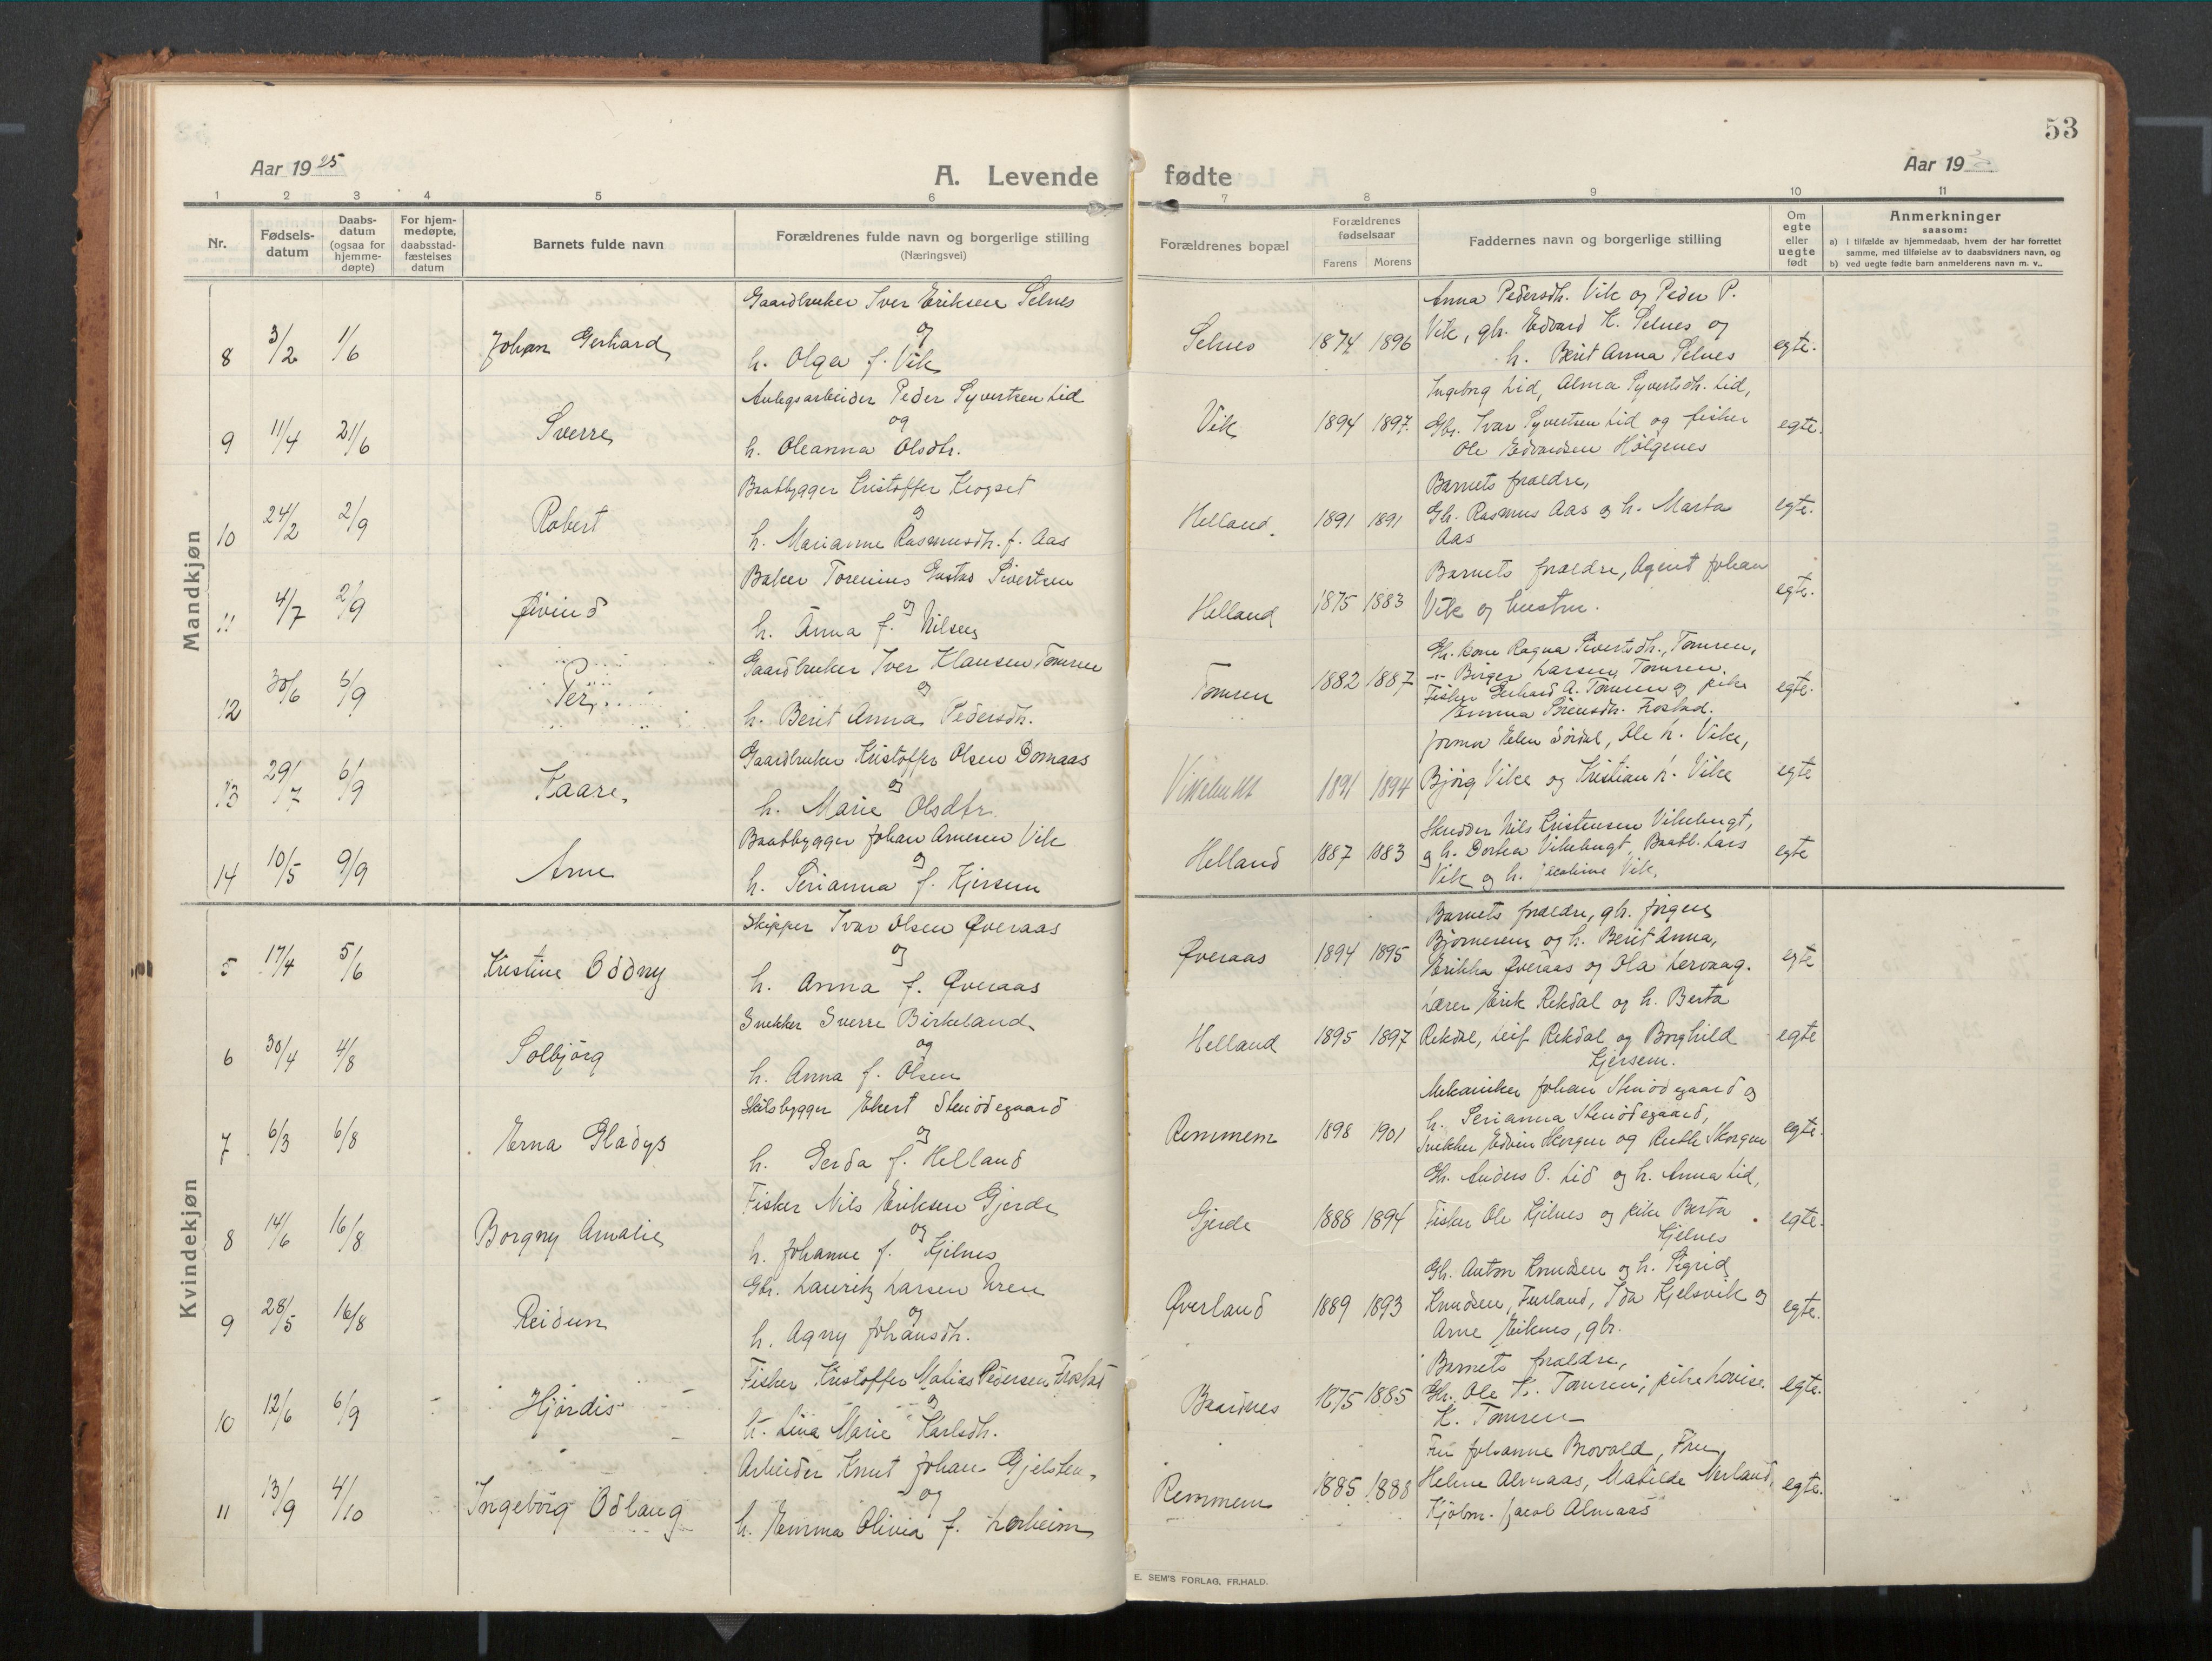 53
Aar 1925
A. Levende fødte
Aar 19
1 2 3 4 5 6 7 8 9 10 11
Nr.
Fødsels-datum
Daabs-datum (ogsaa for hjemme-døpte)
For hjem-medøpte, daabsstad-fæstelses datum
Barnets fulde navn
Forældrenes fulde navn og borgerlige stilling
(Næringsvei)
Forældrenes bopæl
Forældrenes fødselsaar
Farens Morens
Faddernes navn og borgerlige stilling
Om egte eller uegte født
Anmerkninger
saasom:
a) i tilfælde av hjemmedaab, hvem der har forrettet
samme, med tilføielse av to daabsvidners navn, og
b) ved uegte fødte barn anmelderens navn m. v..
Mandkjøn
Gaardbruker Iver Eriksen Selnes
og
8 3/2 1/6 Johan Gerhard
h. Olga f. Vik
Selnes 1874 1896
Anna Pedersdh. Vik og Peder P.
Vik, gb. Edvard K. Selnes og
h. Berit Anna Selnes
egte.
Anlegsarbeider Peder Syvertsen Lid
og
9 11/4 21/6 Sverre
h. Oleanna Olsdtr.
Vik 1894 1897.
Ingeborg Lid, Alma Syvertsdh. Lid,
Gbr. Ivar Syvertsen Lid og fisker
Ole Edvardsen Hølgenes
egte.
Baatbygger Kristoffer Krogset
og
10 24/2 2/9 Robert
h. Marianne Rasmusdh. f. Aas
Helland 1891 1891
Barnets foraeldre,
Gb. Rasmus Aas og h. Marta
Aas
egte.
Baker Torenius Gustav Sivertsen
og
11 4/7 2/9 Øivind
h. Anna f. Nilsen
Helland 1875 1883
Barnets foraeldre, Agent Johan
Vik og hustru.
egte.
Gaardbruker Iver Klausen Tomren
og
12 30/6 6/9 Per
h. Berit Anna Pedersdh.
Tomren 1882 1887
Gb. kone Ragna Sivertsdh., Tomren,
-"- Birger Larsen Tomren.
Fisker Gerhard A. Tomren og pike
Emma Sørensdh. Frostad.
egte.
Gaardbruker Kristoffer Olsen Domaas
og
13 29/7 6/9 Kaare
h. Marie Olsdtr.
Vikebukt 1891 1894
Jormor Elen Sørdal, Ole h. Vike,
Bjørg Vike og Kristian h. Vike
egte
Baatbygger Johan Arnesen Vik
og
14 10/5 9/9 Arne
h. Perianna f. Kjersem
Helland 1887 1883
Skrædder Nils Kristensen Vikebugt,
og h. Dorthea Vikebugt, Baatb. Lars
Vik og h. Vik.
egte
Kvindekjøn
Skipper Ivar Olsen Øveraas
og
5 17/4 5/6 Kristine Oddny
h. Anna f. Øveraas
Øveraas 1894 1895
Barnets foraeldre, gb. Jørgen
Bjørnerem og h. Berit Anna,
Erikka Øveraas og Ola Lervaag.
egte
Snekker Sverre Birkeland
og
6 30/4 4/8 Solbjørg
h. Anna f. Olsen
Helland 1895 1897
Lærer Erik Rekdal og h. Berta
Rekdal, Leif Rekdal og Borghild
Kjersem.
egte
Skibsbygger Ekert Stenødegaard
og
7 6/3 6/8 Erna Gladys
h. Gerda f. Helland
Remmem 1898 1901
Mekaniker Johan Stenødegaard og
h. Perianna Stenødegaard,
Snekker Edvin Skorgen og Ruth Skorgen
egte.
Fisker Nils Eriksen Gjerde
og
8 14/6 16/8 Borgny Amalie
h. Johanne f. Kjelnes
Gjerde 1888 1894
Gb. Anders O. Lid og h. Anna Lid,
Fisker Ole Kjelnes og pike Berta
Kjelnes
egte.
Gbr. Lauritz Larsen Uren
og
9 28/5 16/8 Reidun
h. Agny Johansdh.
Øverland 1889 1893
Gb. Anton Knudsen og h. Sigrid
Knudsen, Furland, Ida Kjelsvik og
Arne Eiknes, gbr.
egte.
Fisker Kristoffer Matias Pedersen Frostad
og
10 12/6 6/9 Hjørdis
h. Lina Marie Karlsdh.
Baardnes 1875 1885
Barnets foraeldre,
Gb. Ole K. Tomren, pike Lovise
K. Tomren
egte.
Arbeider Knut Johan Gjelsten
og
11 13/9 4/10 Ingebörg Odlaug
h. Emma Olivia f. Lerheim
Remmem 1885 1888
Fru Johanne Brovold, Fru
Helene Almaas, Matilde Nerland,
Kjøbm. Jacob Almaas
egte.
E. SEM'S FORLAG, FR.HALD.